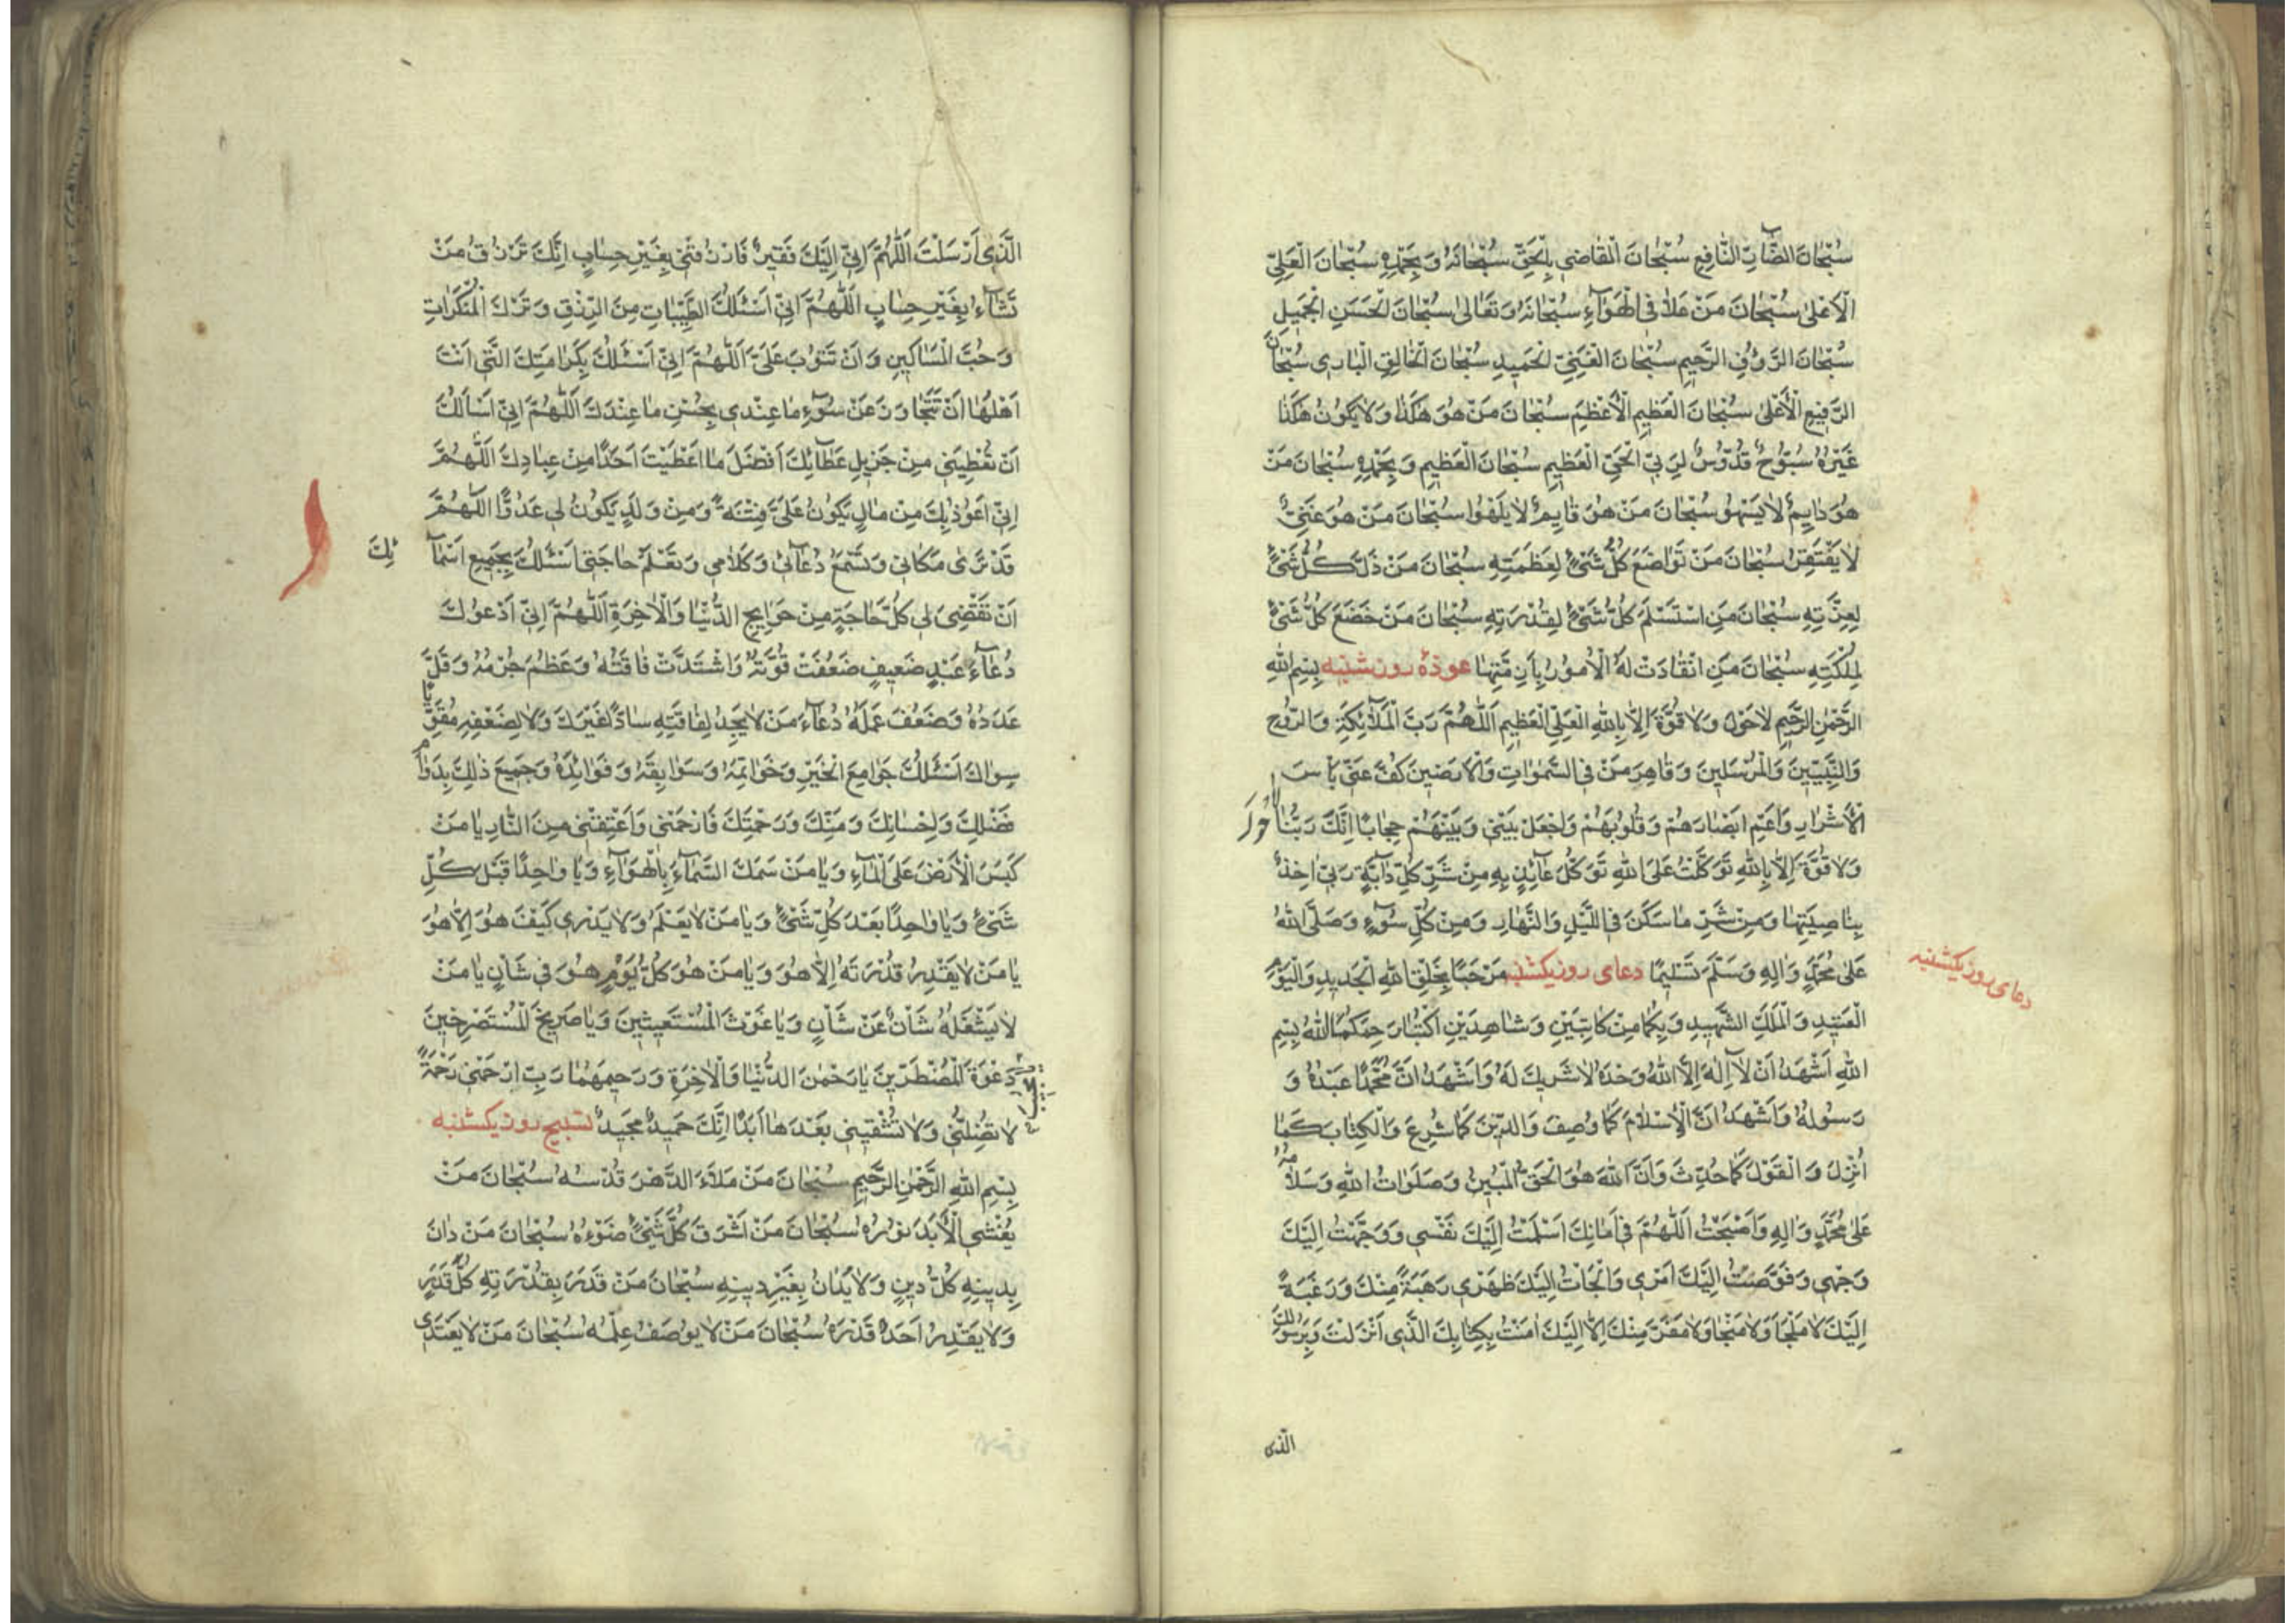 سُبْحَانَ الضَّارِّ النَّافِعِ سُبْحَانَ الْقَاضِي بِالْحَقِّ سُبْحَانَهُ وَبِحَمْدِهِ سُبْحَانَ الْعَلِيِّ
الْأَعْلَىٰ سُبْحَانَ مَنْ عَلَا فِي الْهَوَآءِ سُبْحَانَهُ وَتَعَالىٰ سُبْحَانَ الْحَسَنِ الْجَمِيلِ
سُبْحَانَ الرَّؤُفِ الرَّحِيمِ سُبْحَانَ الْغَنِيِّ الْحَمِيدِ سُبْحَانَ الْخَالِقِ الْبَارِي سُبْحَانَ
الرَّفِيعِ الْأَعْلىٰ سُبْحَانَ الْعَظِيمِ الْأَعْظَمِ سُبْحَانَ مَنْ هُوَ هٰكَذَا وَلَا يَكُونُ هٰكَذَا
غَيْرُهُ سُبُّوحٌ قُدُّوسٌ لِرَبِّيَ الْحَيِّ الْعَظِيمِ سُبْحَانَ الْعَظِيمِ وَبِحَمْدِهِ سُبْحَانَ مَنْ
هُوَ دَايِمٌ لَا يَسْهُو سُبْحَانَ مَنْ هُوَ قَايِمٌ لَا يَلْهُوا سُبْحَانَ مَنْ هُوَ غَنِيٌّ
لَا يَفْتَقِرُ سُبْحَانَ مَنْ تَوَاضَعَ كُلُّ شَيْءٍ لِعَظَمَتِهِ سُبْحَانَ مَنْ ذَلَّ كُلُّ شَيْءٍ
لِعِزَّتِهِ سُبْحَانَ مَنِ اسْتَسْلَمَ كُلُّ شَيْءٍ لِقُدْرَتِهِ سُبْحَانَ مَنْ خَضَعَ كُلُّ شَيْءٍ
لِمُلْكَتِهِ سُبْحَانَ مَنِ انْقَادَتْ لَهُ الْأُمُورُ بِأَزِمَّتِهَا عوذهٔ روز شنبه بِسْمِ اللهِ
الرَّحْمٰنِ الرَّحِيمِ لَا حَوْلَ وَلَا قُوَّةَ إِلَّا بِاللهِ الْعَلِيِّ الْعَظِيمِ اَللّٰهُمَّ رَبَّ الْمَلَآئِكَةِ وَالرُّوحِ
وَالنَّبِيِّينَ وَالْمُرْسَلِينَ وَقَاهِرَ مَنْ فِي السَّمٰوَاتِ وَالْأَرَضِينَ كُفَّ عَنِّي بَأْسَ
الْأَشْرَارِ وَاَعْمِ اَبْصَارَهُمْ وَقُلُوبَهُمْ وَاجْعَلْ بَيْنِي وَبَيْنَهُمْ حِجَابًا اِنَّكَ رَبُّنَا لَا حَوْلَ
وَلَا قُوَّةَ إِلَّا بِاللهِ تَوَكَّلْتُ عَلَى اللهِ تَوَكُّلَ عَآئِذٍ بِهِ مِنْ شَرِّ كُلِّ دَآبَّةٍ رَبِّي اٰخِذٌ
بِنَاصِيَتِهَا وَمِنْ شَرِّ مَا سَكَنَ فِي اللَّيْلِ وَالنَّهَارِ وَمِنْ كُلِّ سُوٓءٍ وَصَلَّى اللهُ
عَلىٰ مُحَمَّدٍ وَاٰلِهِ وَسَلَّمَ تَسْلِيمًا دعای روز یکشنبه مَرْحَبًا بِخَلْقِ اللهِ الْجَدِيدِ وَالْيَوْمِ
دعای روز یکشنبه
الْعَتِيدِ وَالْمَلَكِ الشَّهِيدِ وَبِكُمَا مِنْ كَاتِبَيْنِ وَشَاهِدَيْنِ اُكْتُبَا رَحِمَكُمَا اللهُ بِسْمِ
اللهِ اَشْهَدُ اَنْ لَآ اِلٰهَ اِلَّا اللهُ وَحْدَهُ لَا شَرِيكَ لَهُ وَاَشْهَدُ اَنَّ مُحَمَّدًا عَبْدُهُ وَ
رَسُولُهُ وَاَشْهَدُ اَنَّ الْإِسْلَامَ كَمَا وُصِفَ وَالدِّينَ كَمَا شُرِعَ وَالْكِتَابَ كَمَا
اُنْزِلَ وَالْقَوْلَ كَمَا حُدِّثَ وَاَنَّ اللهَ هُوَ الْحَقُّ الْمُبِينُ وَصَلَوَاتُ اللهِ وَسَلَامُهُ
عَلىٰ مُحَمَّدٍ وَاٰلِهِ وَاَصْبَحْتُ اَللّٰهُمَّ فِي اَمَانِكَ اَسْلَمْتُ اِلَيْكَ نَفْسِي وَوَجَّهْتُ اِلَيْكَ
وَجْهِي وَفَوَّضْتُ اِلَيْكَ اَمْرِي وَاَلْجَاْتُ اِلَيْكَ ظَهْرِي رَهْبَةً مِنْكَ وَرَغْبَةً
اِلَيْكَ لَا مَلْجَاَ وَلَا مَنْجَا وَلَا مَفَرَّ مِنْكَ اِلَّا اِلَيْكَ اٰمَنْتُ بِكِتَابِكَ الَّذِي اَنْزَلْتَ وَبِرَسُولِكَ
الّذی
الَّذِي اَرْسَلْتَ اَللّٰهُمَّ اِنِّي اِلَيْكَ فَقِيرٌ فَارْزُقْنِي بِغَيْرِ حِسَابٍ اِنَّكَ تَرْزُقُ مَنْ
تَشَآءُ بِغَيْرِ حِسَابٍ اَللّٰهُمَّ اِنِّي اَسْئَلُكَ الطَّيِّبَاتِ مِنَ الرِّزْقِ وَتَرْكَ الْمُنْكَرَاتِ
وَحُبَّ الْمَسَاكِينِ وَاَنْ تَتُوبَ عَلَيَّ اَللّٰهُمَّ اِنِّي اَسْئَلُكَ بِكَرَامَتِكَ الَّتِي اَنْتَ
اَهْلُهَا اَنْ تَتَجَاوَزَ عَنْ سُوٓءِ مَا عِنْدِي بِحُسْنِ مَا عِنْدَكَ اَللّٰهُمَّ اِنِّي اَسْاَلُكَ
اَنْ تُعْطِيَنِي مِنْ جَزِيلِ عَطَآئِكَ اَفْضَلَ مَا اَعْطَيْتَ اَحَدًا مِنْ عِبَادِكَ اَللّٰهُمَّ
اِنِّي اَعُوذُ بِكَ مِنْ مَالٍ يَكُونُ عَلَيَّ فِتْنَةً وَمِنْ وَلَدٍ يَكُونُ لِي عَدُوًّا اَللّٰهُمَّ
قَدْ تَرىٰ مَكَانِي وَتَسْمَعُ دُعَآئِي وَكَلَامِي وَتَعْلَمُ حَاجَتِي اَسْئَلُكَ بِجَمِيعِ اَسْمَآ
ئِكَ
اَنْ تَقْضِيَ لِي كُلَّ حَاجَةٍ مِنْ حَوَايِجِ الدُّنْيَا وَالْاٰخِرَةِ اَللّٰهُمَّ اِنِّي اَدْعُوكَ
دُعَآءَ عَبْدٍ ضَعِيفٍ ضَعُفَتْ قُوَّتُهُ وَاشْتَدَّتْ فَاقَتُهُ وَعَظُمَ جُرْمُهُ وَقَلَّ
عَدَدُهُ وَضَعُفَ عَمَلُهُ دُعَآءَ مَنْ لَا يَجِدُ لِفَاقَتِهِ سَادًّا غَيْرَكَ وَلَا لِضَعْفِهِ مُقَوِّيًا
سِوَاكَ اَسْئَلُكَ جَوَامِعَ الْخَيْرِ وَخَوَاتِمَهُ وَسَوَابِقَهُ وَفَوَائِدَهُ وَجَمِيعَ ذٰلِكَ بِدَوَامِ
فَضْلِكَ وَاِحْسَانِكَ وَمَنِّكَ وَرَحْمَتِكَ فَارْحَمْنِي وَاَعْتِقْنِي مِنَ النَّارِ يَا مَنْ
كَبَسَ الْاَرْضَ عَلَى الْمَآءِ وَيَا مَنْ سَمَكَ السَّمَآءَ بِالْهَوَآءِ وَيَا وَاحِدًا قَبْلَ كُلِّ
شَيْءٍ وَيَا وَاحِدًا بَعْدَ كُلِّ شَيْءٍ وَيَا مَنْ لَا يَعْلَمُ وَلَا يَدْرِي كَيْفَ هُوَ اِلَّا هُوَ
يَا مَنْ لَا يَقْدِرُ قُدْرَتَهُ اِلَّا هُوَ وَيَا مَنْ هُوَ كُلَّ يَوْمٍ هُوَ فِي شَاْنٍ يَا مَنْ
لَا يَشْغَلُهُ شَاْنٌ عَنْ شَاْنٍ وَيَا غَوْثَ الْمُسْتَغِيثِينَ وَيَا صَرِيخَ الْمُسْتَصْرِخِينَ
دَعْوَةِ الْمُضْطَرِّينَ يَا رَحْمٰنَ الدُّنْيَا وَالْاٰخِرَةِ وَرَحِيمَهُمَا رَبِّ ارْحَمْنِي رَحْمَةً
لَا تُضِلُّنِي وَلَا تُشْقِينِي بَعْدَهَا اَبَدًا اِنَّكَ حَمِيدٌ مَجِيدٌ تسبیح روز یکشنبه
بِسْمِ اللهِ الرَّحْمٰنِ الرَّحِيمِ سُبْحَانَ مَنْ مَلَاَ الدَّهْرَ قُدْسُهُ سُبْحَانَ مَنْ
يَغْشَى الْاَبَدَ نُورُهُ سُبْحَانَ مَنْ اَشْرَقَ كُلَّ شَيْءٍ ضَوْءُهُ سُبْحَانَ مَنْ دَانَ
بِدِينِهِ كُلُّ دِينٍ وَلَا يُدَانُ بِغَيْرِ دِينِهِ سُبْحَانَ مَنْ قَدَرَ بِقُدْرَتِهِ كُلَّ قَدَرٍ
وَلَا يَقْدِرُ اَحَدٌ قَدْرَهُ سُبْحَانَ مَنْ لَا يُوصَفُ عِلْمُهُ سُبْحَانَ مَنْ لَا يَعْتَدِي